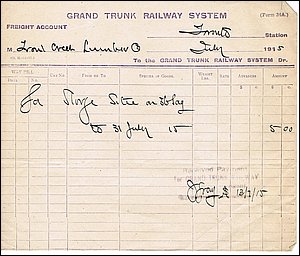 GRAND TRUNK RAILWAY SYSTEM
(Form 34A.)
FREIGHT ACCOUNT
Toronto Station
M. Trout Creek Lumber Co July 1915
To the GRAND TRUNK RAILWAY SYSTEM Dr.
WAY BILL
CAR NO. FROM OR TO SPECIES OF GOODS WEIGHT LBS. RATE ADVANCES AMOUNT
For Storge Site on
to 31 July 15 5 00
Received Payment
GRAND TRUNK RAILWAY
13/7/15